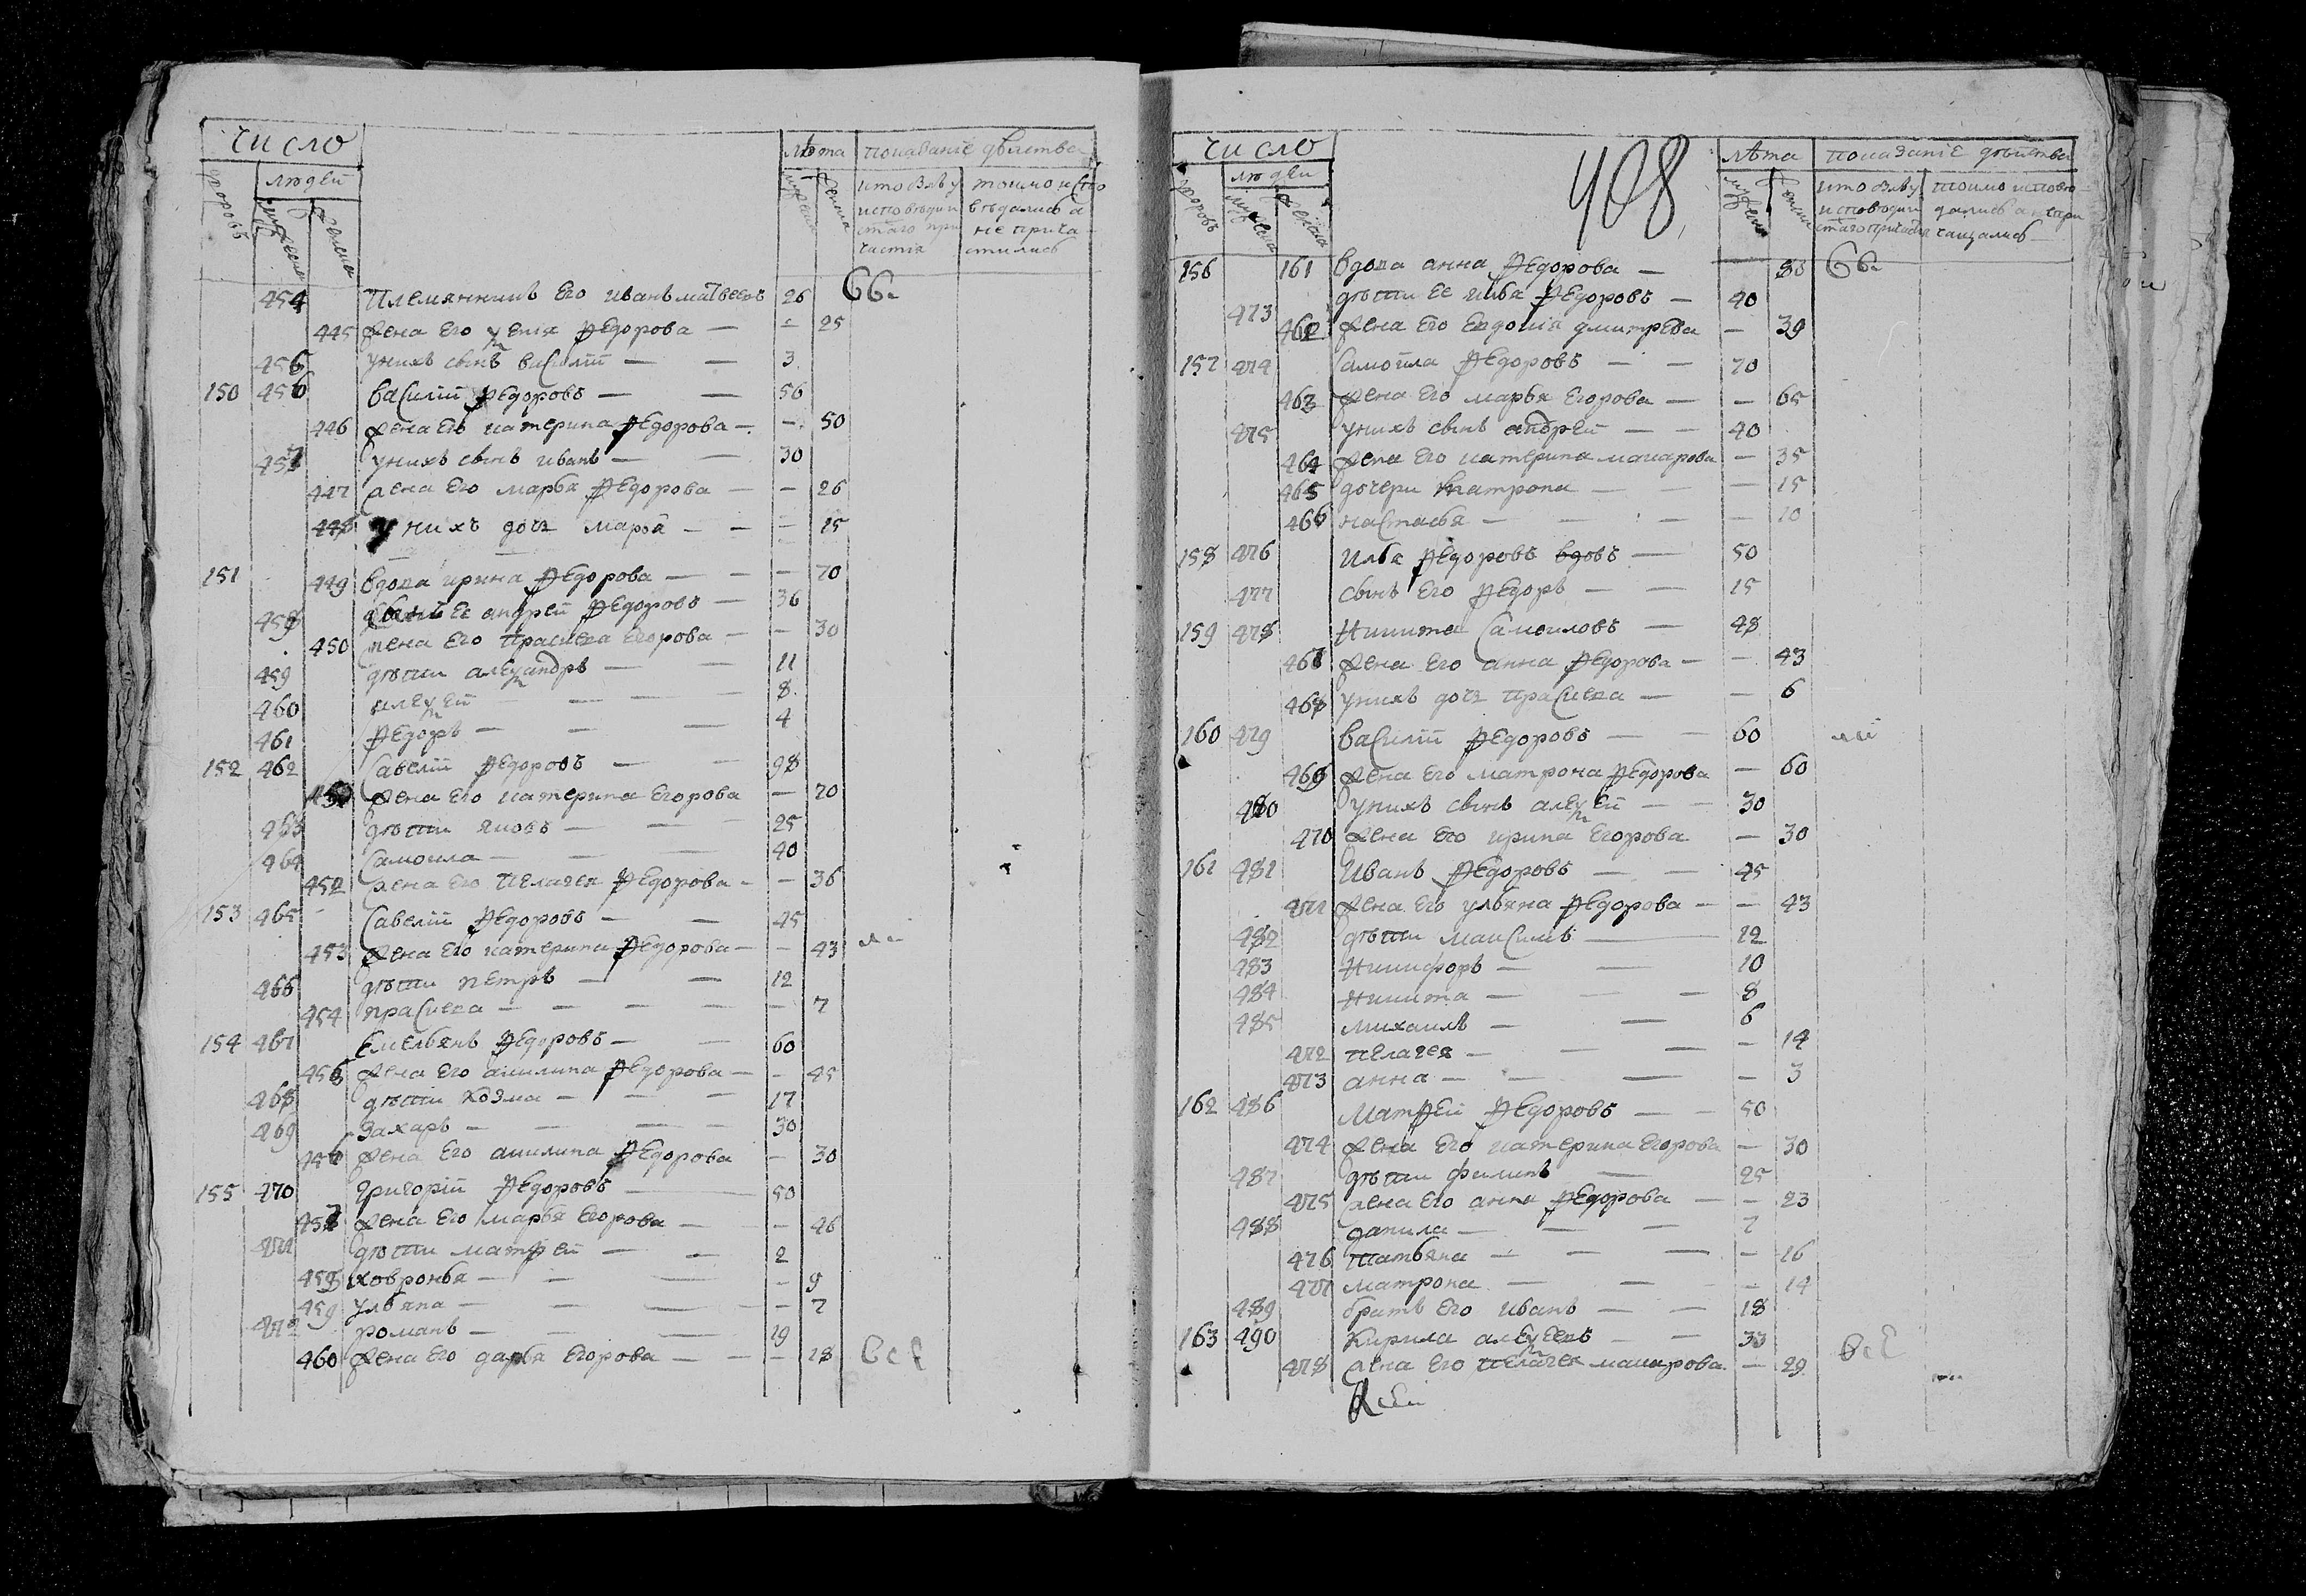 число
людей
дворовъ
мужеска
женска
лѣта
показаніе дѣйства
мужеска
женска
кто былъ у
исповѣди и
стаго при
частія
токмо испо
вѣдались а
не прича
стились
454 Племянникъ его иванъ матвеевъ 26 бы
445 жена его ксенiя федорова — — 25
455 у нихъ сынъ василiй — — 3
150 456 василiй федоровъ — — 56
446 жена его катерина федорова — — 50
457 у нихъ сынъ иванъ — — 30
447 жена его марья федорова — — 26
448 у нихъ дочь марфа — — — 15
151 449 вдова ирина федорова — — — 70
458 сынъ ее андрей федоровъ — 36
450 жена его праскева егорова — — 30
459 дѣти александръ — — 11
460 алексей — — — 8
461 федоръ — — — 4
152 462 савелiй федоровъ — — 98
451 жена его катерина егорова — 70
463 дѣти яковъ — — — 25
464 самоила — — — 40
452 жена его пелагея федорова — — 36
153 465 савелiй федоровъ — — 45
453 жена его катерина федорова — — 43
466 дѣти петръ — — 12
454 праскева — — — — — 7
154 467 емельянъ федоровъ — — 60
455 жена его акилина федорова — — 45
468 дѣти козма — — — 17
469 захаръ — — — — 30
456 жена его акилина федорова — 30
155 470 григорiй федоровъ — — 50
457 жена его марья егорова — — 46
471 дѣти матфей — — 2
458 ховронья — — — — 9
459 ульяна — — — — 7
472 романъ — — — 19
460 жена его дарья егорова — — — 18 все
число
408
людей
дворовъ
мужеска
женска
лѣта
показанiе дѣйства
мужеска
женска
кто былъ у
исповѣди и
стаго причастiя
токмо испове
дались а непри
чащались
156 161 вдова анна федорова — — 80 бы
473 дѣти ее илья федоровъ — 40
462 жена его евдокiя дмитрева — 39
157 474 самойла федоровъ — — 70
463 жена его марья егорова — — 65
475 у нихъ сынъ андрей — — 40
464 жена его катерина макарова — 35
465 дочери матрона — — — 15
466 настасья — — — — 10
158 476 илья федоровъ вдовъ — 50
477 сынъ его федоръ — — 15
159 478 Никита самоиловъ — 48
467 жена его анна федорова — — 43
468 у нихъ дочь праскева — — 6
160 479 василiй федоровъ — — 60
469 жена его матрона федорова — 60
480 у нихъ сынъ алексей — — 30
470 жена его ирина егорова — 30
161 481 Иванъ федоровъ — — 45
471 жена его ульяна федорова — — 43
482 дѣти максимъ — 12
483 Никифоръ — — 10
484 Никита — — — 8
485 михаилъ — — 6
472 пелагея — — — — 14
473 анна — — — — 3
162 486 Матфей федоровъ — — 50
474 жена его катерина егорова — 30
487 дѣти филипъ — 25
475 жена его анна федорова — — 23
488 данила — — — 7
476 татьяна — — — — 16
477 матрона — — — — 14
489 братъ его иванъ — — 18
163 490 Кирила алексеевъ — — 33
478 жена его пелагея макарова — 29 все